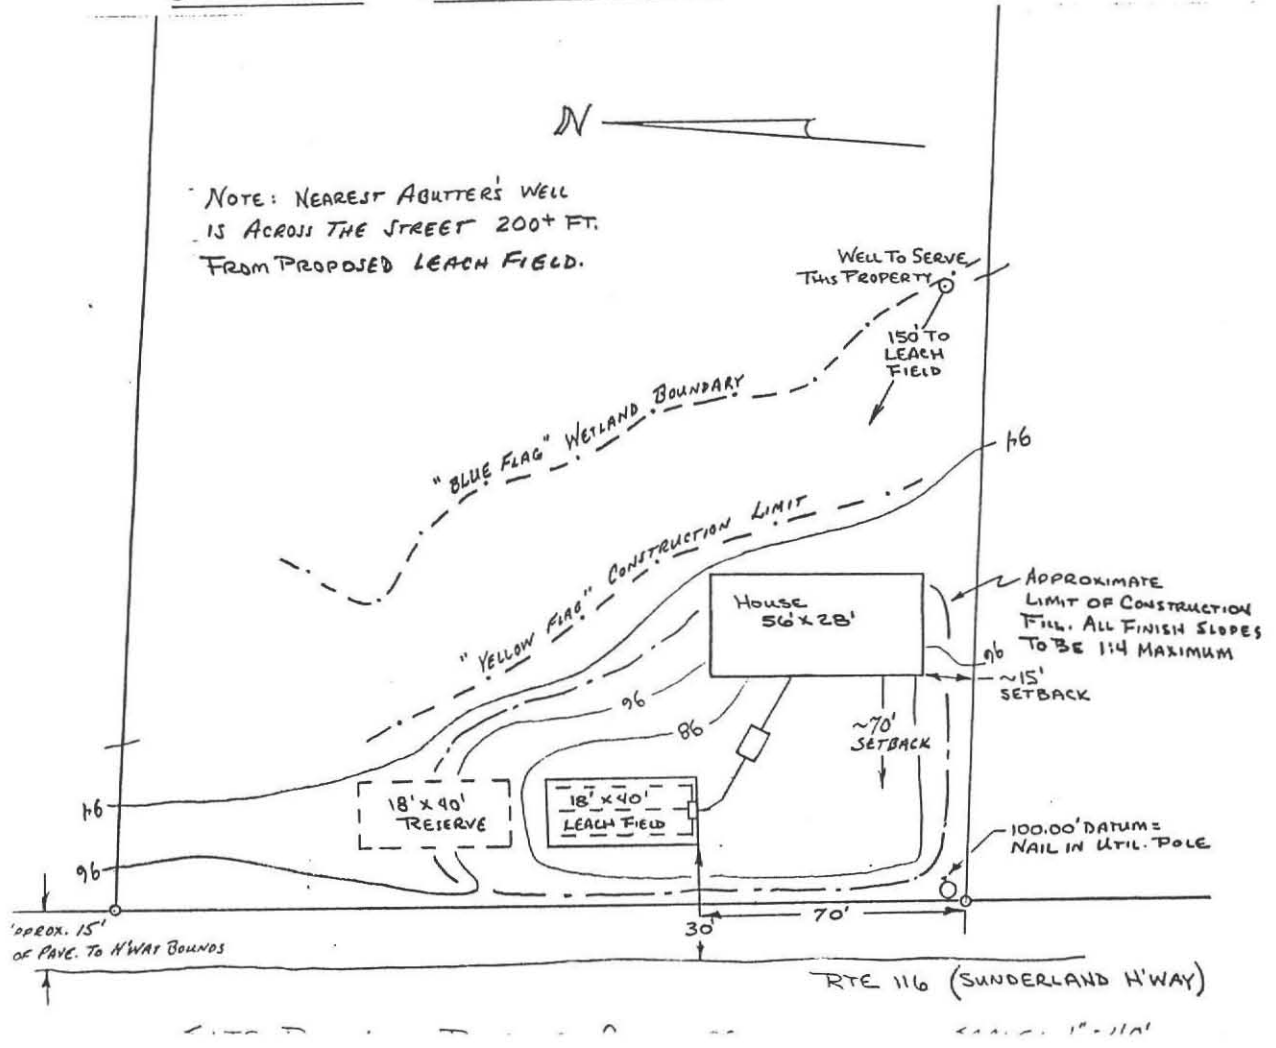 N
NOTE: NEAREST ABUTTER'S WELL
IS ACROSS THE STREET 200+ FT.
FROM PROPOSED LEACH FIELD.
WELL TO SERVE
THIS PROPERTY
150' TO
LEACH
FIELD
"BLUE FLAG" WETLAND BOUNDARY
94
"YELLOW FLAG" CONSTRUCTION LIMIT
HOUSE
56' X 28'
APPROXIMATE
LIMIT OF CONSTRUCTION
FILL. ALL FINISH SLOPES
TO BE 1:4 MAXIMUM
96
~15'
SETBACK
96
98
~70'
SETBACK
94
18' X 40'
RESERVE
18' X 40'
LEACH FIELD
100.00' DATUM =
NAIL IN UTIL. POLE
96
70'
30'
APPROX. 15'
OF PAVE. TO H'WAY BOUNDS
RTE 116 (SUNDERLAND H'WAY)